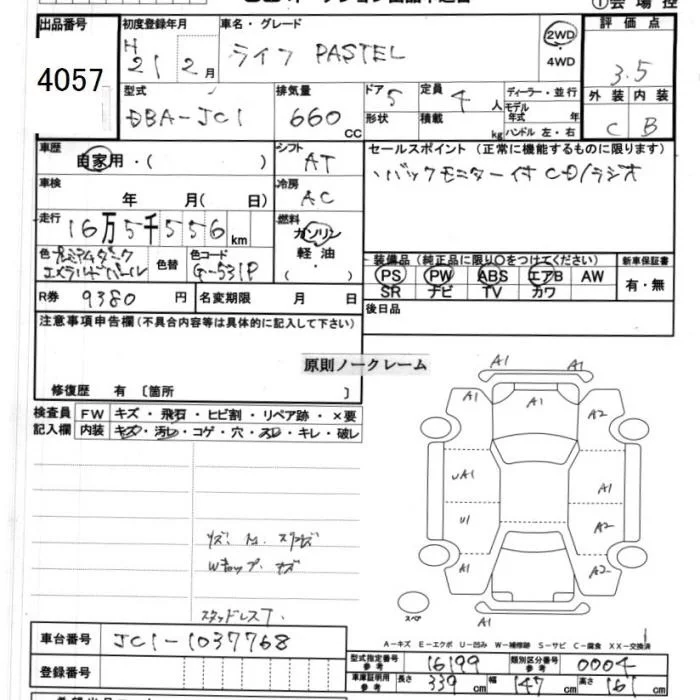 ① 会 場 控
出品番号
4057
初度登録年月
H 21 2 月
車名・グレード
ライフ PASTEL
2WD
・
4WD
評 価 点
3.5
外 装 内 装
C B
型式
DBA-JC1
排気量
660 CC
ドア 5
形状
定員 4 人
積載 kg
ディーラー・並行
モデル
年式 年
ハンドル 左・右
車歴
自家用・( )
シフト
AT
セールスポイント (正常に機能するものに限ります)
バックモニター付 CD/ラジオ
車検
年 月( 日)
冷房
AC
走行
16万5千556 km
燃料
ガソリン
軽 油
( ・ )
色 プレミアムダーク
エメラルドパール
色替
色コード
G-531P
装備品 (純正品に限り○をつけてください)
新車保証書
PS PW ABS エアB AW
SR ナビ TV カワ
有・無
R券 9380 円
名変期限 月 日
後日品
注意事項申告欄(不具合内容等は具体的に記入して下さい)
原則ノークレーム
修復歴 有 〔箇所 〕
検査員
記入欄
FW キズ・飛石・ヒビ割・リペア跡・×要
内装 キズ・汚レ・コゲ・穴・スレ・キレ・破レ
A1 A1
A1 A1 A2
UA1 A1
U1 A2
A1 A2
A1
スペア
スタッドレスT.
A-キズ E-エクボ U-凹み W-補修跡 S-サビ C-腐食 XX-交換済
車台番号 JC1-1037768
登録番号
型式指定番号
参考
16199
類別区分番号
参考
0004
車庫証明用
参考
長さ 339 cm 幅 147 cm 高さ 161 cm